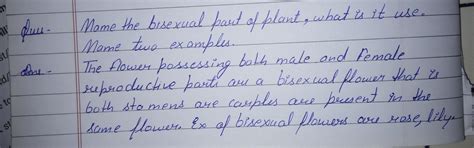 Ques - Name the bisexual part of plant, what is it use.
Name two examples.
Ans - The flower possessing both male and female
reproductive parts are a bisexual flower that is
both stamens are carples are present in the
same flower. Ex of bisexual flowers are rose, lily